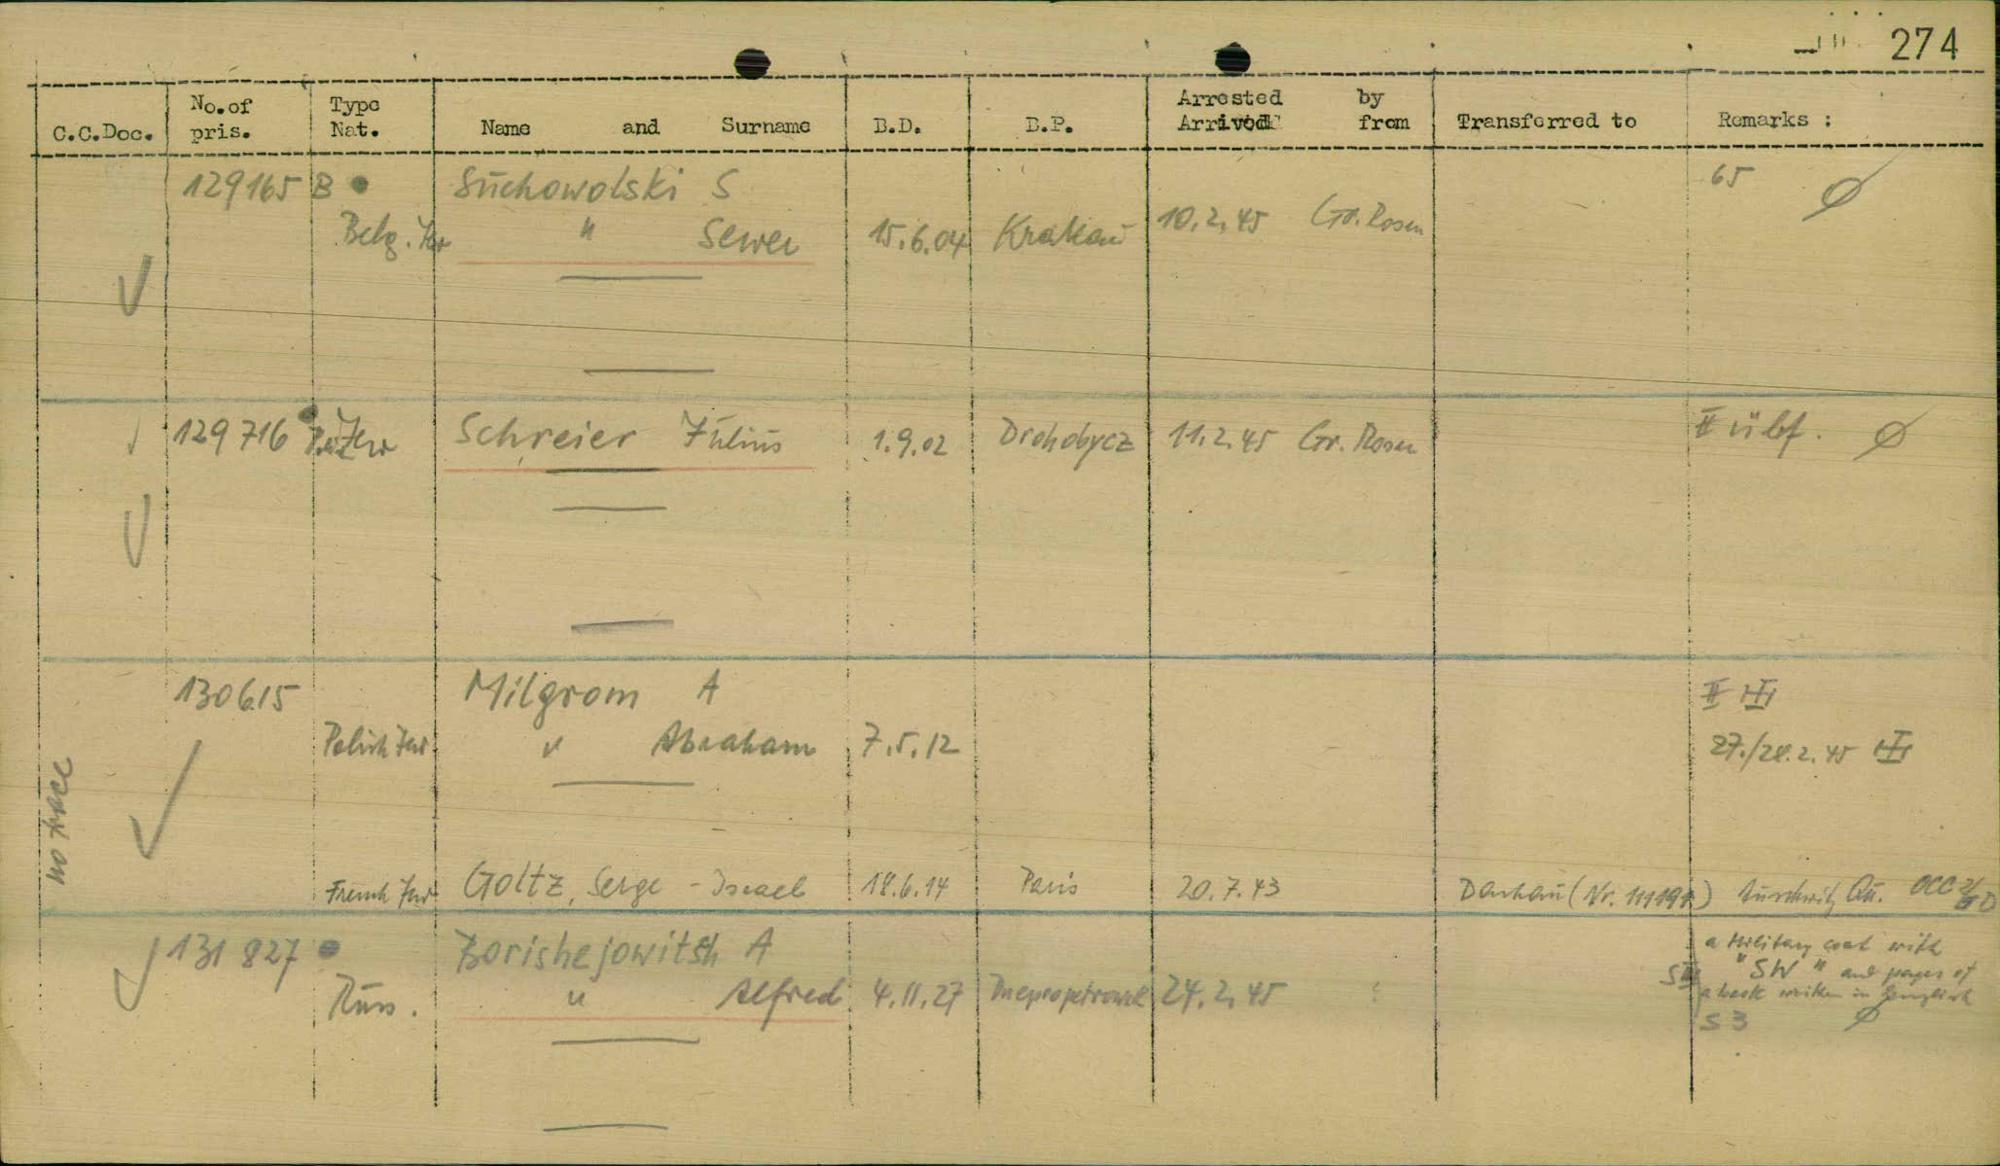 274
C.C.Doc. No. of pris. Type Nat. Name and Surname B.D. B.P. Arrested by Arrived from Transferred to Remarks :
129165 B Suchowolski S 65
Belg. " Sewer 15.6.04 Krakau 10.2.45 Gr. Rosen
129716 Schreier Julius 1.9.02 Drohobycz 11.2.45 Gr. Rosen II übf.
130615 Milgrom A II
Polish Jew " Abraham 7.5.12 27./28.2.45
no trace
French Jew Goltz, Serge - Israel 18.6.14 Paris 20.7.43 Dachau (Nr. Auschwitz Qu. OCC
131827 Borishejowitsh A a Military coat with
Russ. " Alfred 4.11.27 Dnepropetrowsk 24.2.45 "SW" and pages of
a book written in English
S3